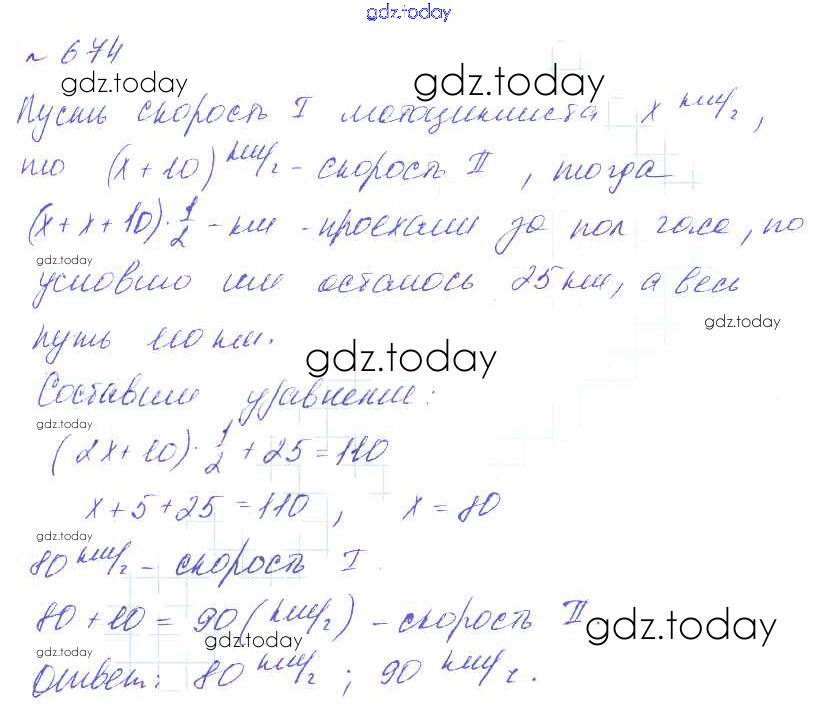 gdz.today
№ 674
gdz.today
gdz.today
Пусть скорость I мотоциклиста x км/г,
то (x + 10) км/г - скорость II, тогда
(x + x + 10) · 1/2 - км - проехали за пол часа, по
gdz.today
условию им осталось 25 км, а весь
gdz.today
путь 110 км.
gdz.today
Составим уравнение:
gdz.today
(2x + 10) · 1/2 + 25 = 110
x + 5 + 25 = 110, x = 80
gdz.today
80 км/г - скорость I.
80 + 10 = 90 (км/г) - скорость II
gdz.today
gdz.today
gdz.today
Ответ: 80 км/г; 90 км/г.